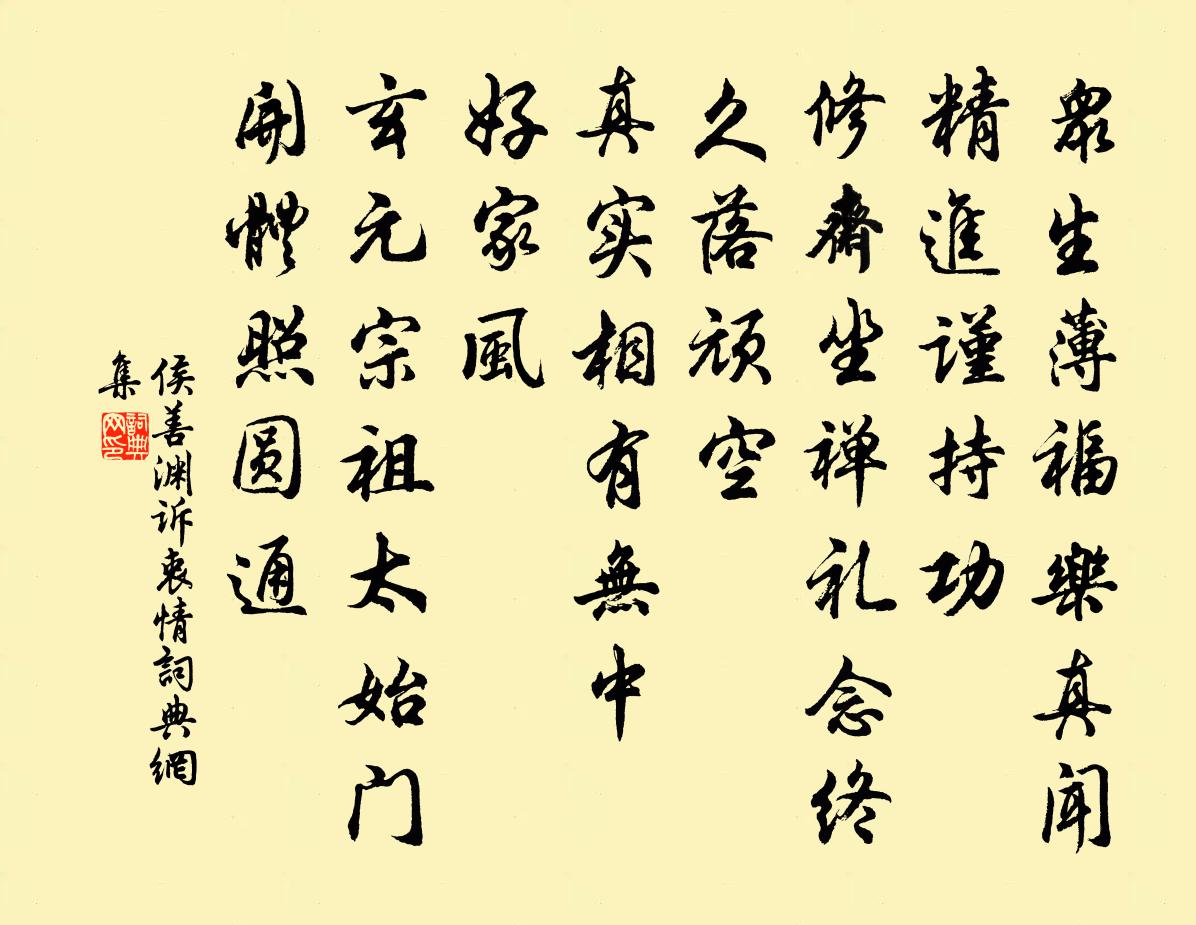 眾生薄福樂真闻
精進謹持功
修齋坐禅礼念终
久落顽空
真实相有無中
好家風
玄元宗祖太始门
開體照圆通
侯善渊诉衷情詞典網
集
詞典网印